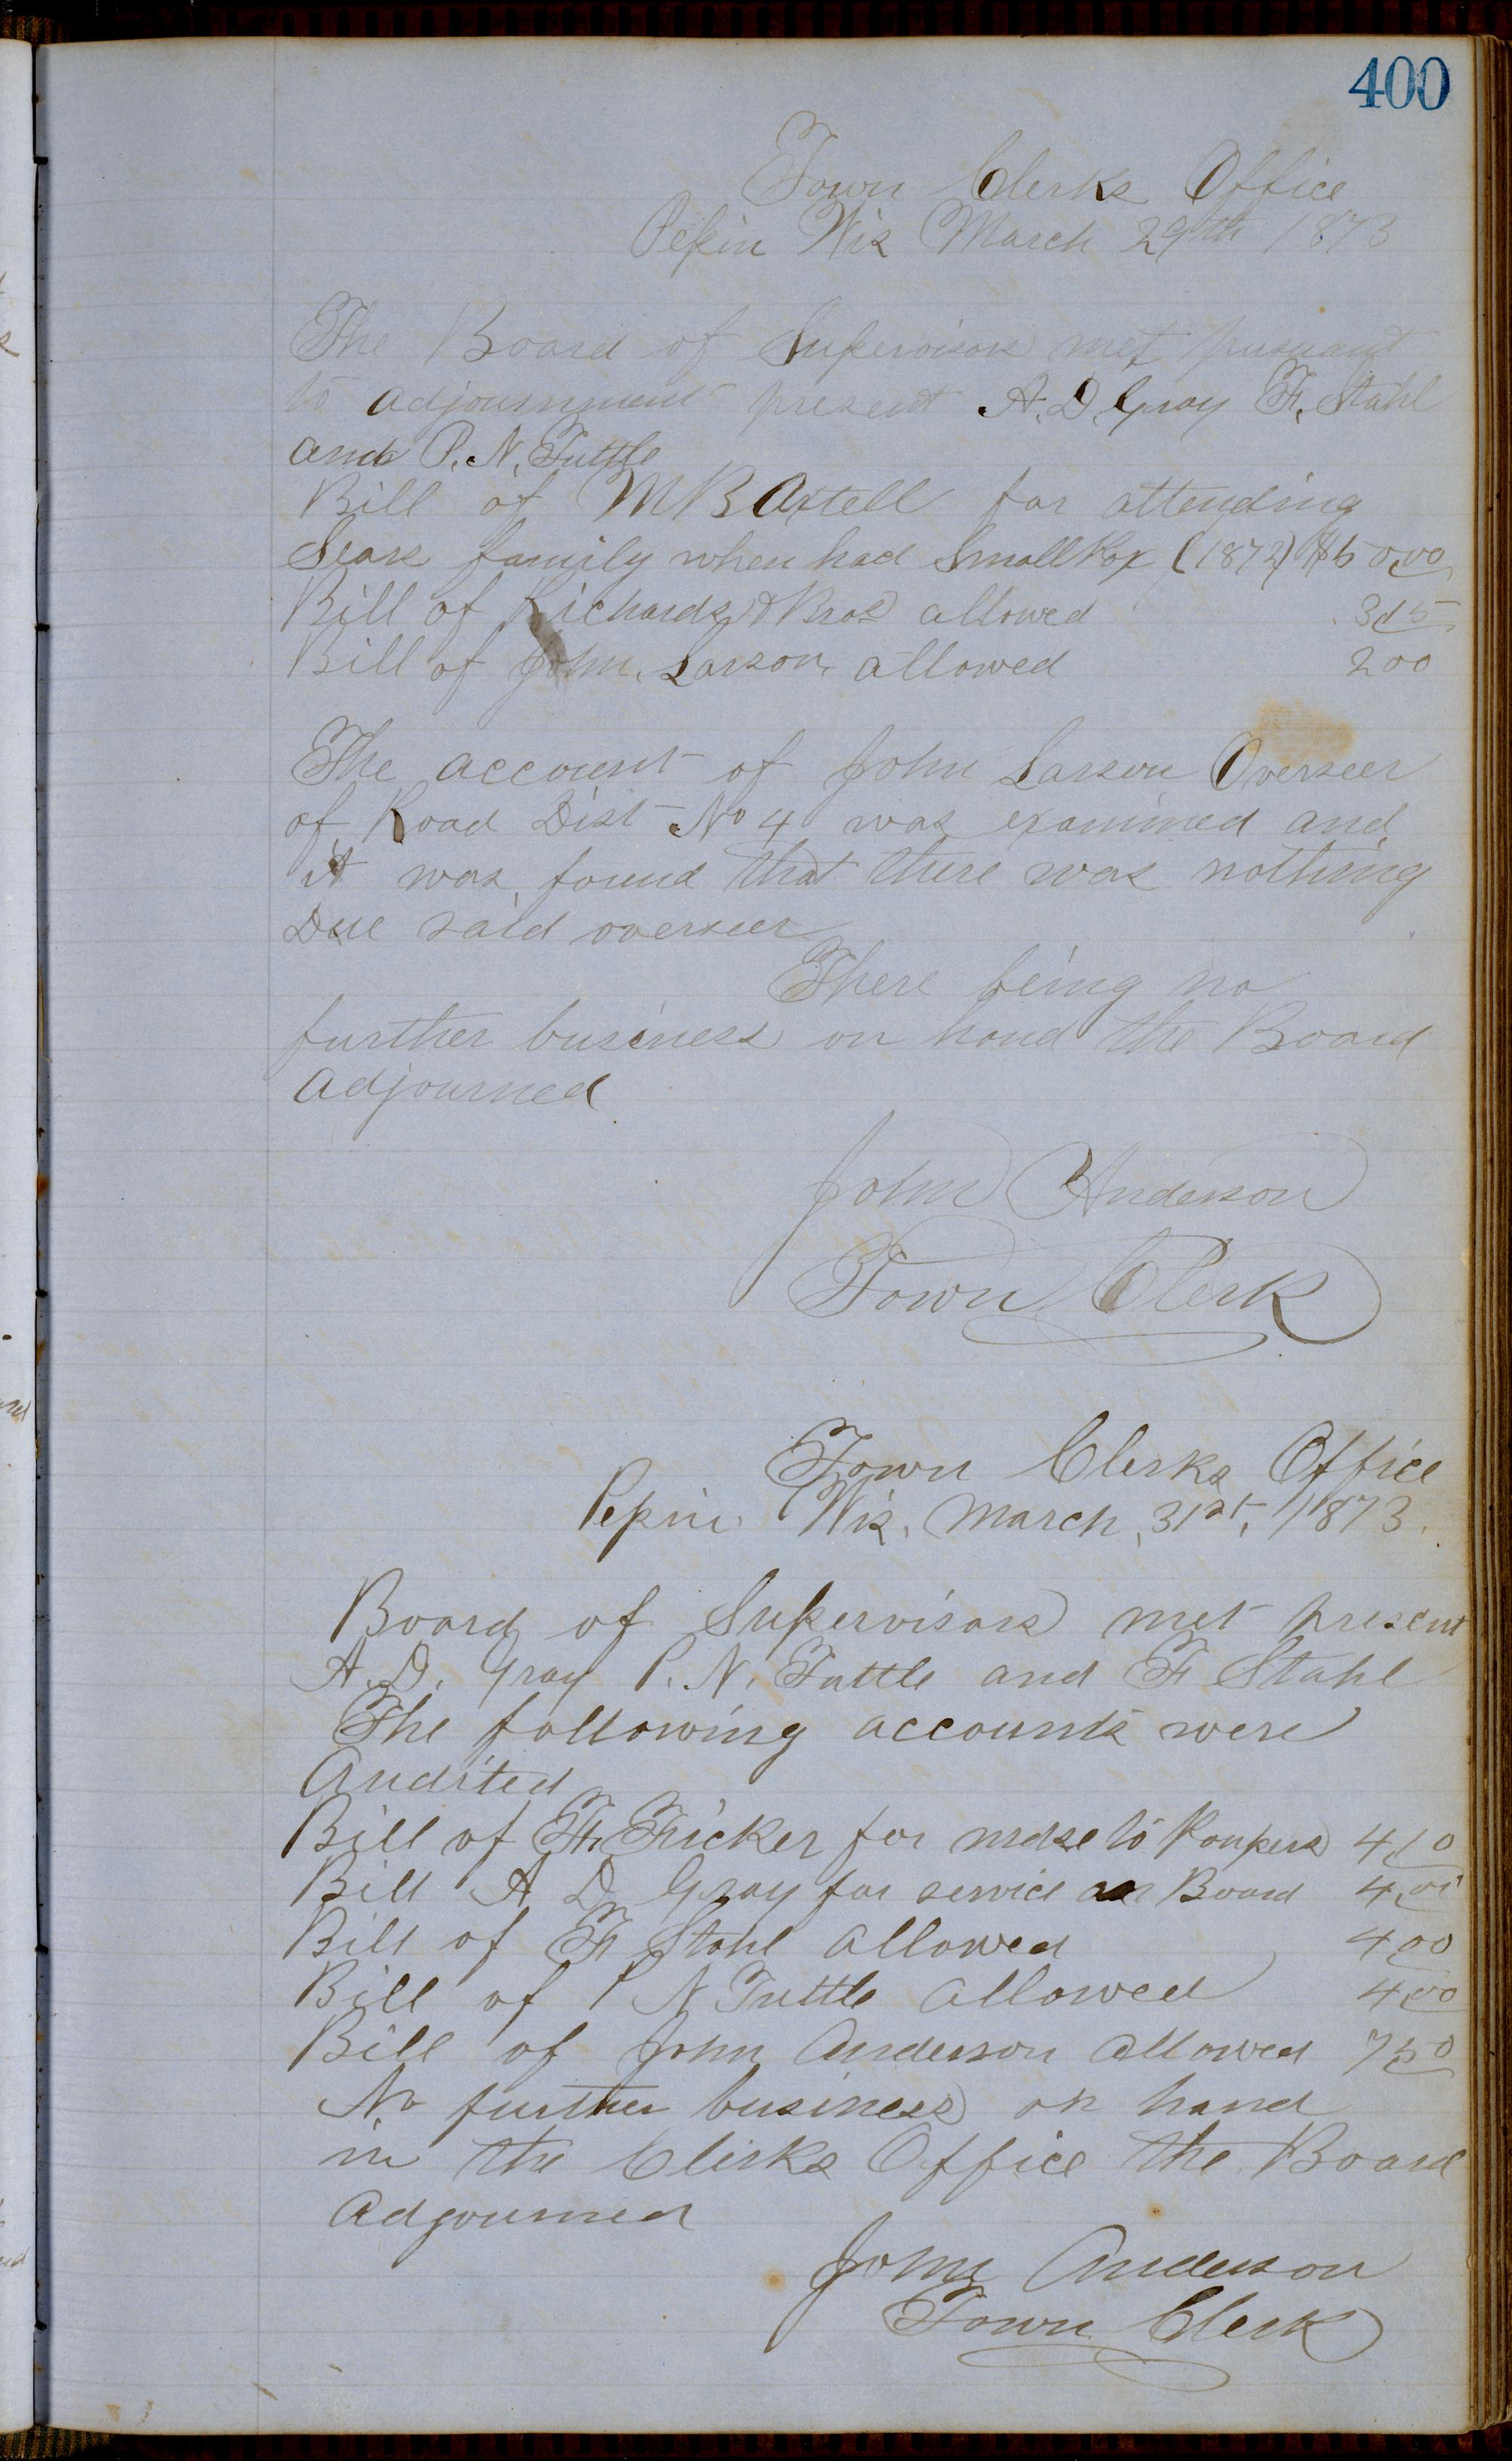 400
Town Clerks Office
Pepin Wis March 29th 1873
The Board of Supervisors met pursuant
to adjournment present A. D. Gray F. Stahl
and P. N. Tuttle
Bill of M B Axtell for attending
Sears family when had Small Pox (1872) $50.00
Bill of Richards & Bros allowed
Bill of John Larson allowed 2 00
The account of John Larson Overseer
of Road Dist No 4 was examined and
it was found that there was nothing
Due said overseer
There being no
further business on hand the Board
adjourned
John Anderson
Town Clerk
Town Clerks Office
Pepin Wis. March 31st, 1873.
Board of Supervisors met present
A. D. Gray P. N. Tuttle and F Stahl
The following accounts were
Audited
Bill of F. Fricker for mdse to Paupers 4,10
Bill A D Gray for service on Board 4,00
Bill of F Stahl allowed 4 00
Bill of P N Tuttle allowed 4,00
Bill of John Anderson allowed 7 50
No further business on hand
in the Clerks Office the Board
adjourned
John Anderson
Town Clerk